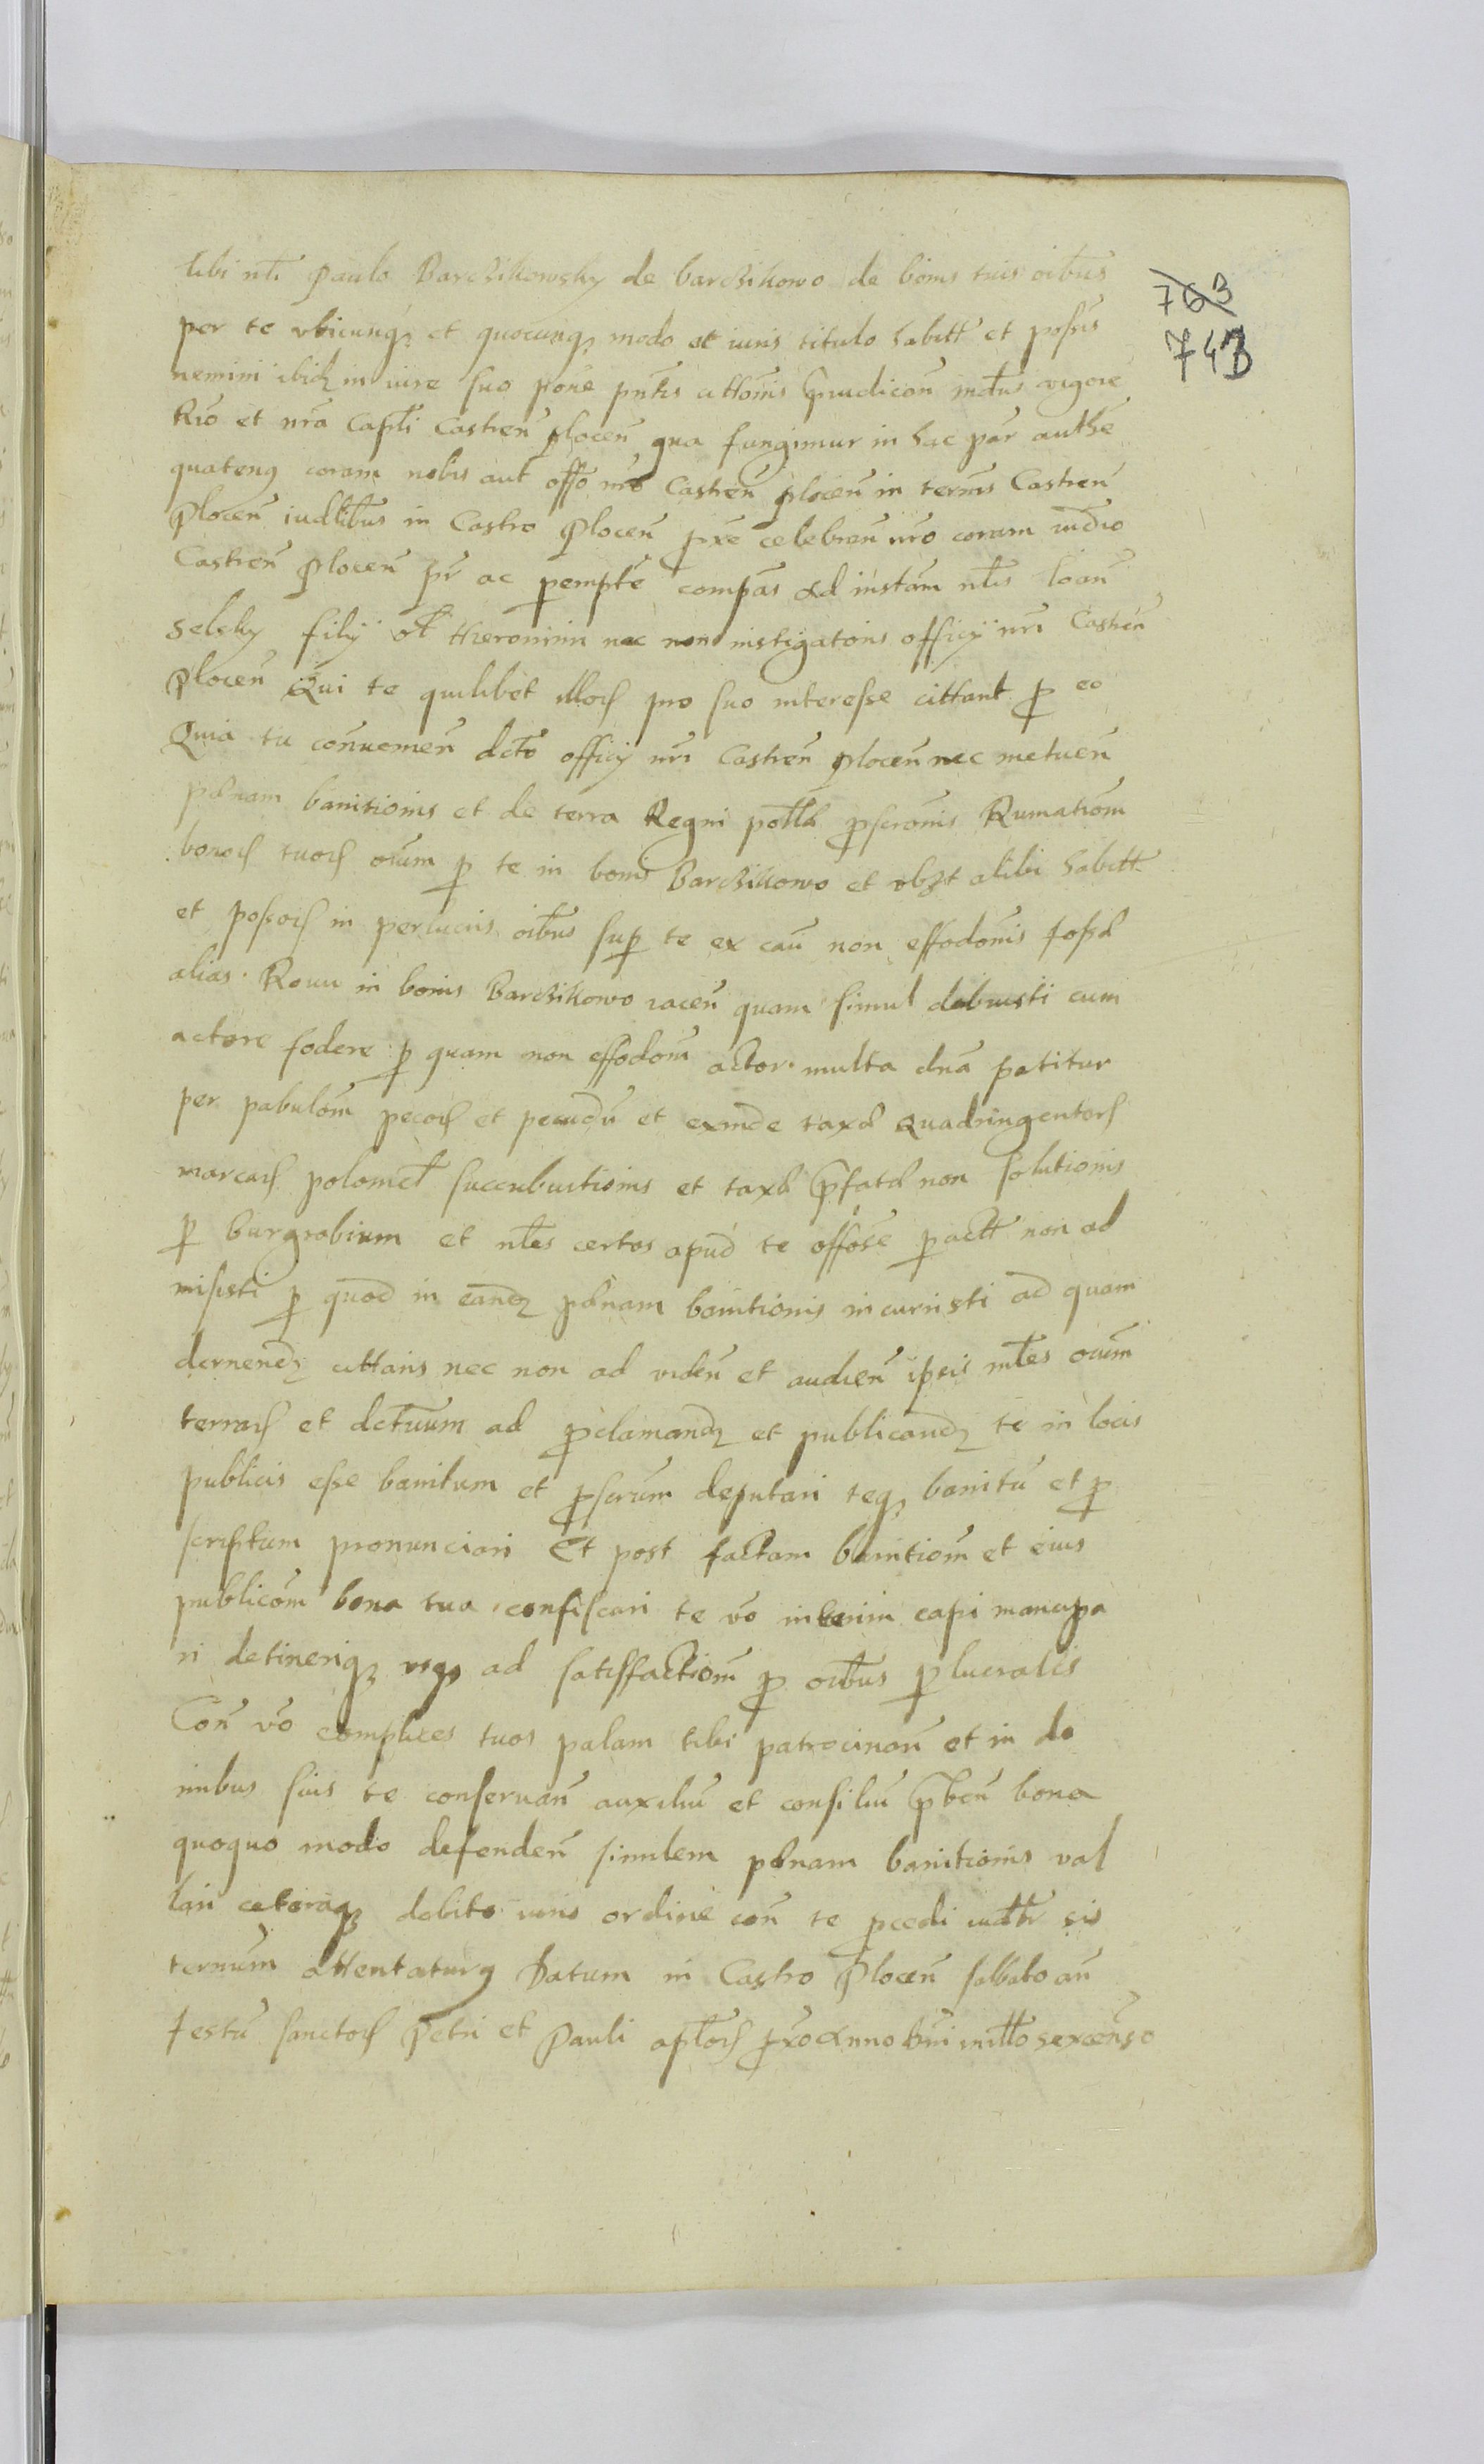 763
743
tibi nłi Paulo Barcżikowsky de barcżikowo de bonis tuis oibus
per te vbicunqȝ et quocunqȝ modo et iuris titulo habitt et possis
nemini ibidȝ in iure suo pone pntis cittōnis pniudicoñ mdtus vigore
Rio et nrã Capłi Castreñ płoceñ qua fungimur in hac par authe
quatenq coram nobis aut offo nrõ Castreñ płoceñ in termis Castreñ
Płoceñ iudłibus in Castro Płoceñ pxe celebreñ nrõ coram iudio
Castreñ Płoceñ pr ac pempte compãs ad instam nłis Ioañ
Selsky filÿ ołt Hieronimi nec non instigatoris officÿ nrĩ Castreñ
Płoceñ Qui te quilibet illoȝ pro suo interesse cittant p eo
Quia tu conuemeñ dcto officÿ nrĩ Castreñ płoceñ nec metueñ
pænam banitionis et de terra Regni połłæ pscronis Rumatiom
bonoȝ tuoȝ oium p te in bonis Barcżikowo et vbȝt alibi habitt
et possoȝ in perlucris oibus sup te ex cau non effodonis fossæ
alias Rowu in bonis Barcżikowo iaceñ quam simul debuisti cum
actore fodere p quam non effodom actor multa dnã patitur
per pabulom pecoȝ et pecudũ et exinde taxæ Quadringentoȝ
marcaȝ polonicł succubuitionis et taxæ pfatæ non solutionis
p burgrabium et nłes certos apud te offose pactt non ad
misisti p quod in eandȝ pænam banitionis incurristi ad quam
decernendȝ cittaris nec non ad videñ et audieñ ipsis nłes oium
terraȝ et dctuum ad pclamandȝ et publicandȝ te in locis
publicis esse banitum et pscrum deputari teqȝ banitũ et p
scriptum pronunciari Et post factam banitiom et eius
publicom bona tua confiscari te vo interim capi mancipa
ri detineriqȝ vsqȝ ad satisfactiom p oibus plucratis
Coñ vo complices tuos palam tibi patrocinañ et in do
mibus suis te conseruañ auxiliũ et consiliũ pbeñ bona
quoquo modo defendeñ similem pænam banitionis val
lari ceteraqȝ debito iuris ordine coñ te pcedi iudtr sis
ternum attentaturq Datum in Castro Płoceñ sabbato añ
festũ sanctoȝ Petri et Pauli apłoȝ pxo Anno Dni millo sexcenso